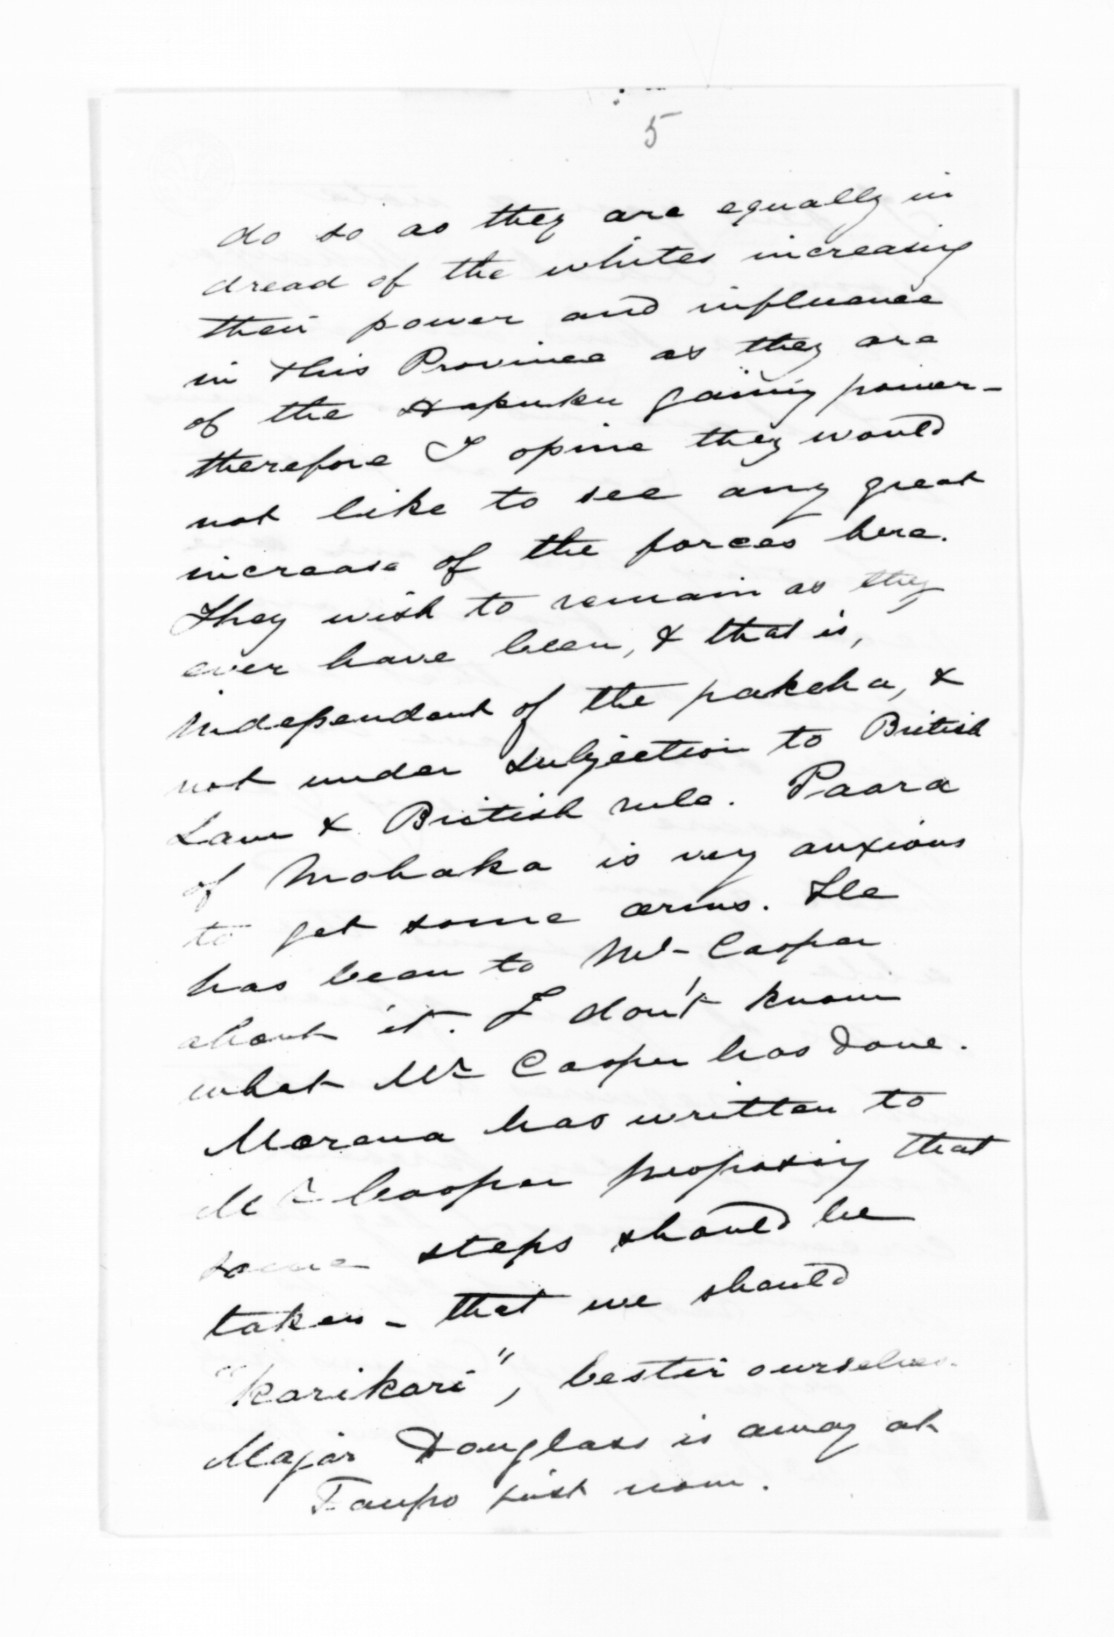 5
do so as they are equally in
dread of the whites increasing
their power and influence
in this Province as they are
of the Hapuku gaining power -
therefore I opine they would
not like to see any great
increase of the forces here.
They wish to remain as they
ever have been, & that is,
independant of the pakeha, &
not under subjection to British
Law & British rule. Paora
of Mohaka is very anxious
to get some arms. He
has been to Mr Cooper
about it. I don't know
what Mr Cooper has done.
Marana has written to
Mr Cooper proposing that
some steps should be
taken - that we should
"karikari", bestir ourselves.
Major Douglass is away at
Taupo just now.